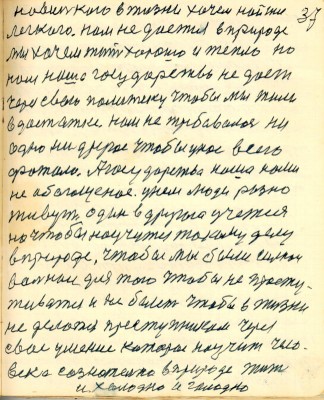 37
такого в жизни хочем найти
легкого. нам не дается в природе
мы хочем жить хорошо и тепло но
нам наше государство не дает
через свою политеку чтобы мы жили
в достатке нам не требовалось ни
одно ни другое чтобы у нас всего
А государства наша нами
не обогощеное. у нем люди разно
живут один в другого учатся
но чтобы научится такому делу
в природе, чтобы мы были
для того чтобы не просту-
живатся и не болеть чтобы в жизни
не делатся преступником через
свое умение которое научит чело-
века сознательно в природе жить
и холодно и голодно